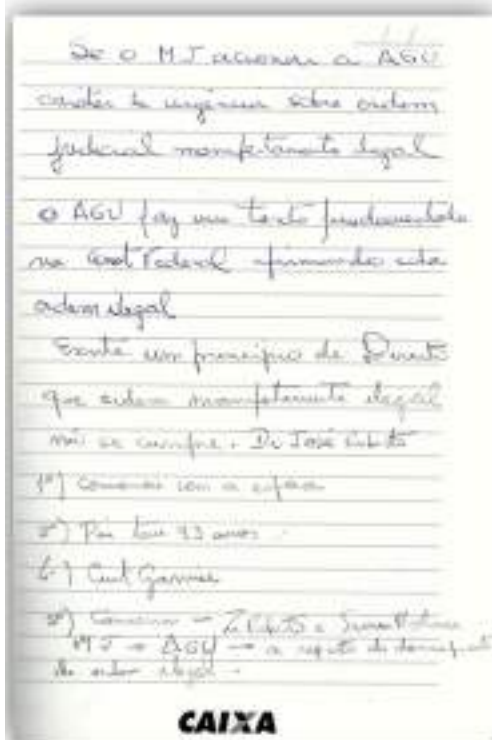 Se o MJ acionar a AGU
caráter de urgência sobre ordem
judicial manifestamente ilegal
o AGU faz um texto fundamentado
na Const Federal afirmando esta
ordem ilegal
Existe um princípio de Direito
que ordem manifestamente ilegal
não se cumpre. Dr José
1º) Comercei com a
2º) Pai tem 93 anos.
6)
3º) - Zé e
MJ → AGU → a respeito do
da ordem ilegal.
CAIXA